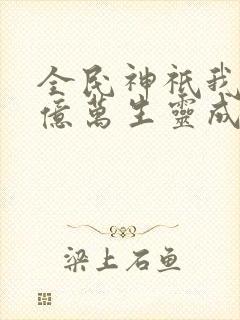 全民神祇我
億萬生靈成
梁上石鱼